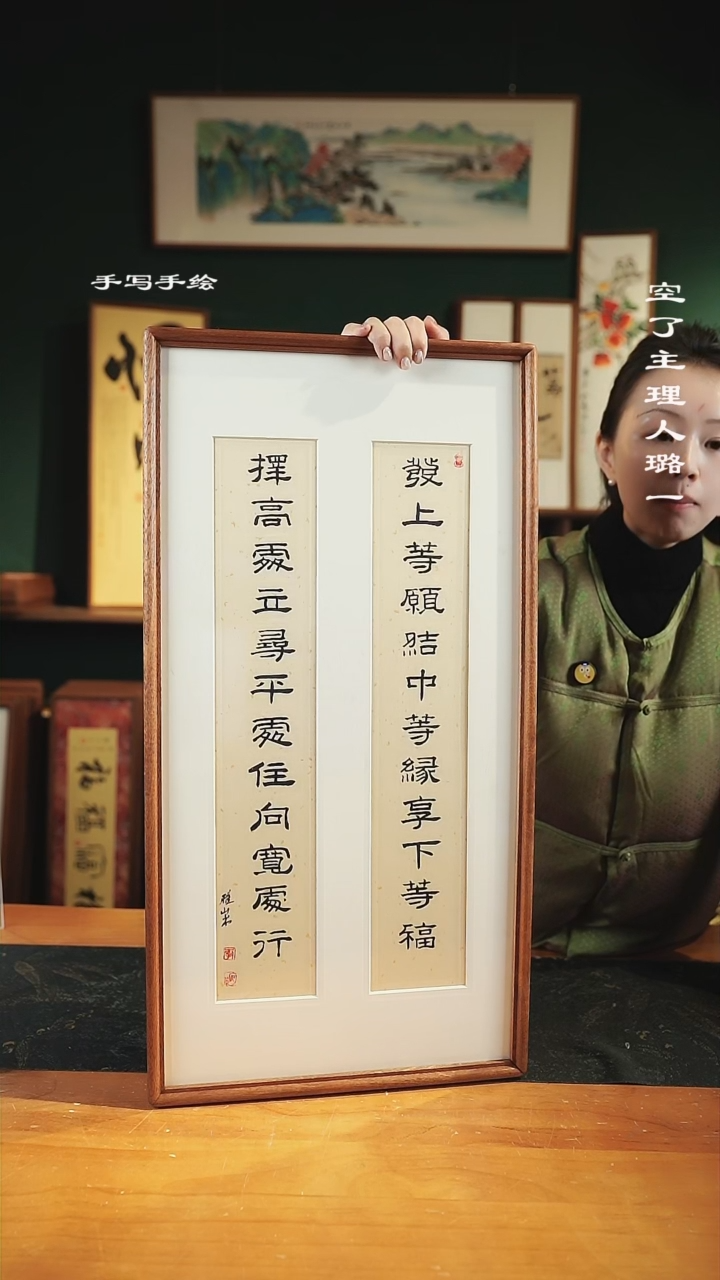 手写手绘
空了主理人璐一
發上等願結中等緣享下等福
擇高處立尋平處住向寬處行